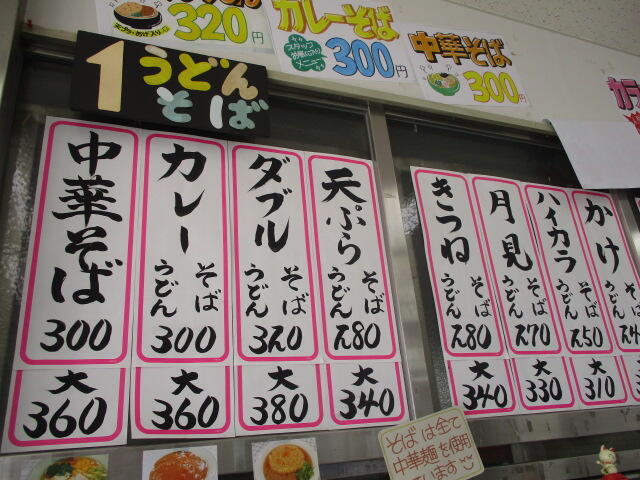 320円
カレーそば
スタッフ
メニュー
300円
中華そば
300円
1 うどん
そば
中華そば
300
大
360
カレー
そば
うどん
300
大
360
ダブル
そば
うどん
320
大
380
天ぷら
そば
うどん
280
大
340
きつね
そば
うどん
280
大
340
月見
そば
うどん
270
大
330
ハイカラ
そば
うどん
250
大
310
かけ
そば
うどん
大
そばは全て
中華麺を使用
ています